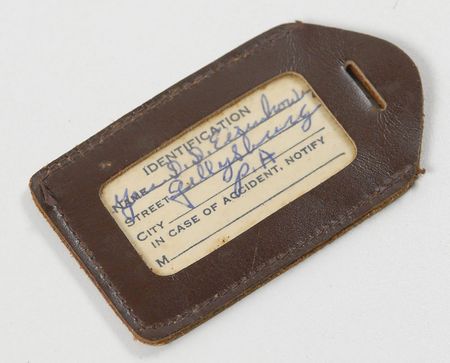 IDENTIFICATION
NAME Gen D. D. Eisenhower
STREET Gettysburg
CITY PA
IN CASE OF ACCIDENT, NOTIFY
M